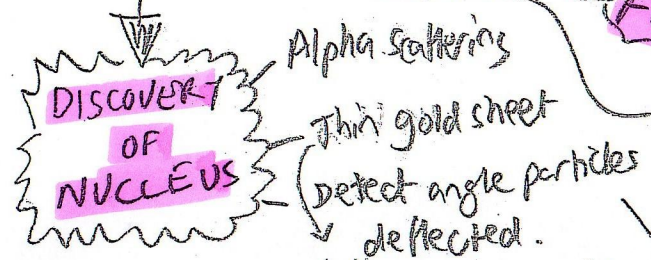 DISCOVERY
OF
NUCLEUS
Alpha scattering
Thin gold sheet
Detect angle particles
deflected.